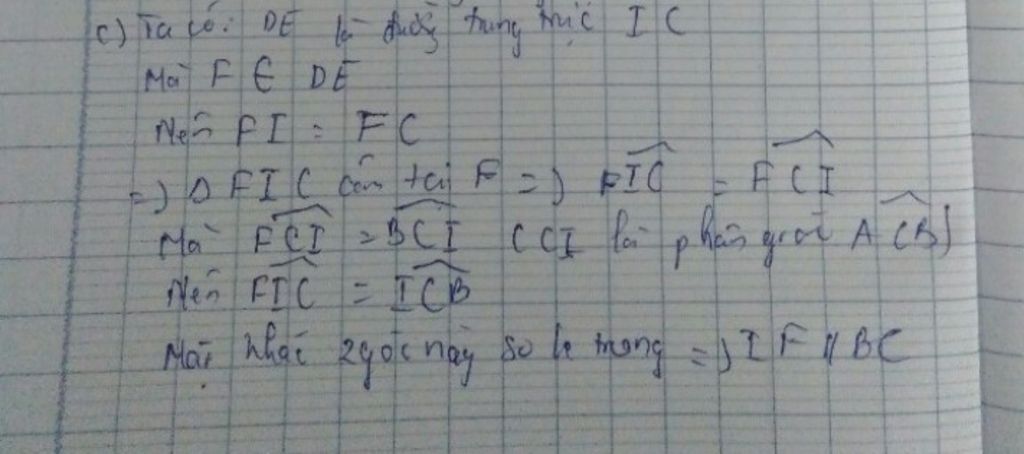 c) Ta có: DE là đường trung trực IC
Mà F ∈ DE
Nên FI = FC
=) Δ FIC cân tại F =) FIC = FCI
Mà FCI = BCI (CI là phân giác ACB)
Nên FIC = ICB
Mặt khác 2 góc này so le trong =) IF // BC